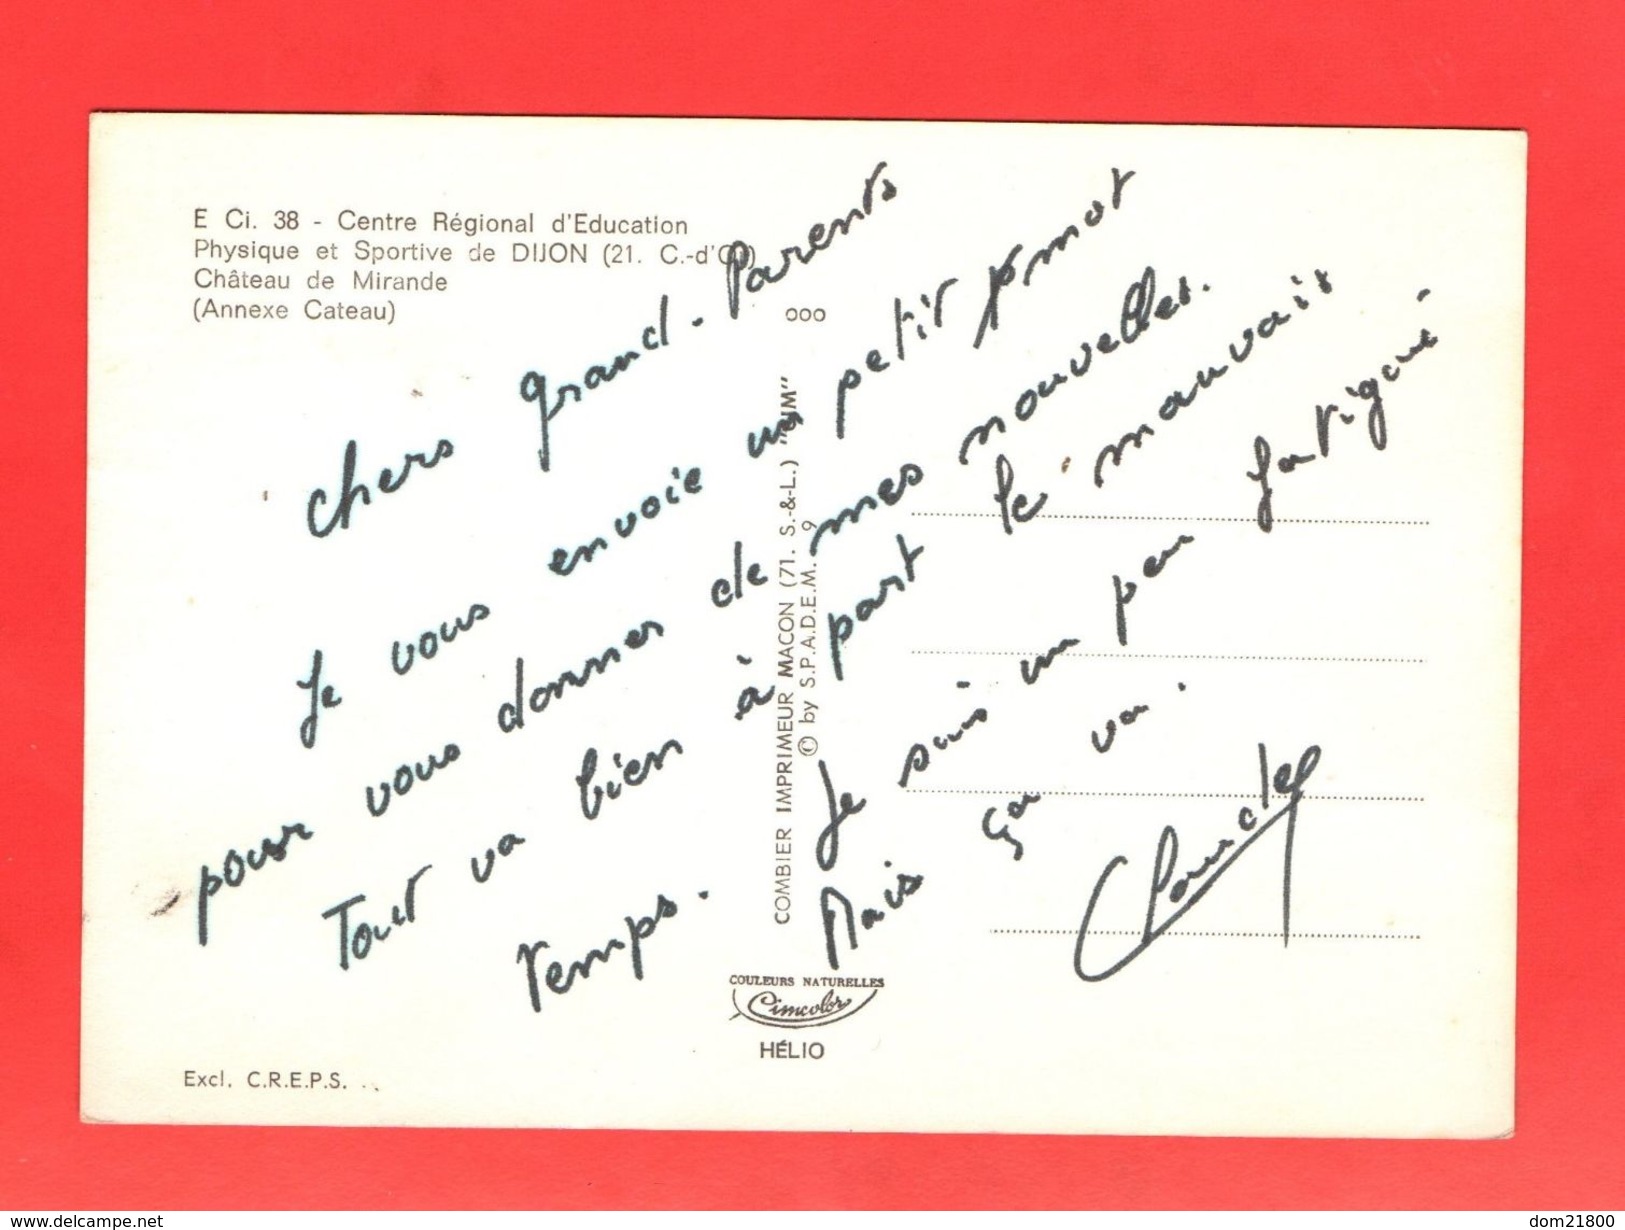 E Ci. 38 - Centre Régional d'Education
Physique et Sportive de DIJON (21. C.-d'Or)
Château de Mirande
(Annexe Cateau)
ooo
chers grand-Parents
Je vous envoie un petit mot
pour vous donner de mes nouvelles.
Tout va bien à part le mauvais
temps. Je suis un peu fatigué
Mais ça va.
Claude
COMBIER IMPRIMEUR MACON (71. S.-&-L.) "CIM"
© by S.P.A.D.E.M. 9
COULEURS NATURELLES
Cimcolor
HÉLIO
Excl. C.R.E.P.S.
delcampe.net
dom21800